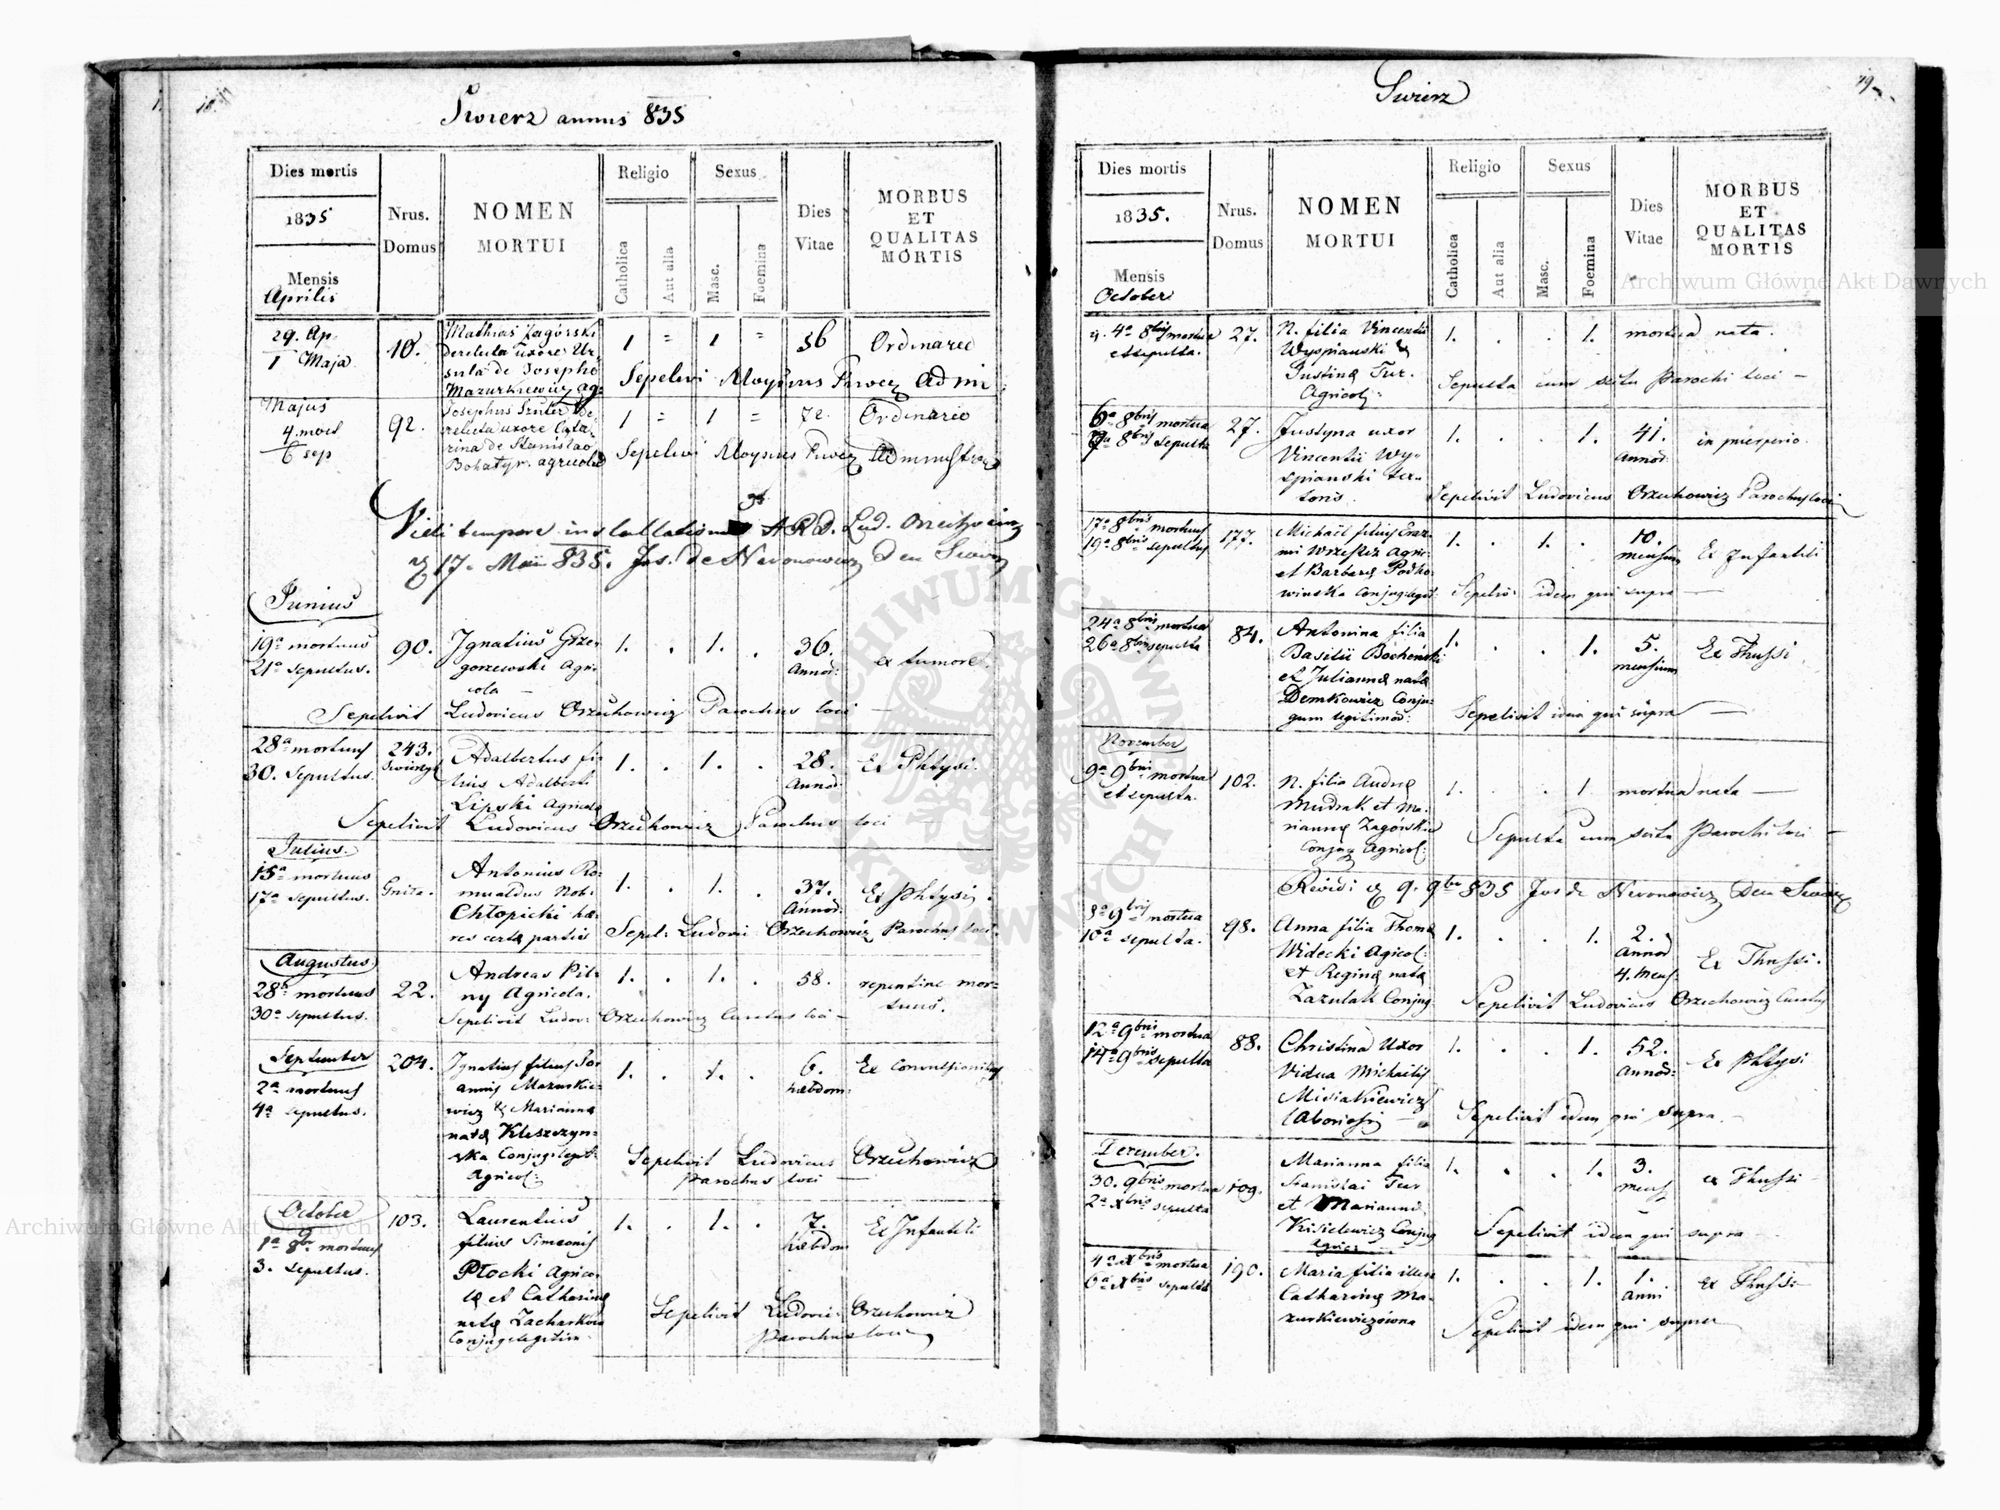 Swierz annus 835
Dies mortis
1835
Mensis
Aprilis
Nrus.
Domus
NOMEN
MORTUI
Religio
Catholica
Aut alia
Sexus
Masc.
Foemina
Dies
Vitae
MORBUS
ET
QUALITAS
MORTIS
29. Ap.
1 Maja
10.
Mathias Zagórski
derelicta uxore Ur
sula de Josepho
Mazurkiewicz ag:
1 = 1 =
56
Ordinareo
Sepelivi Aloysius Admi
Majus
4 mort
6 sep
92.
Josephus
relicta uxore Cata
rina de Stanislao
Bohatyr. agricola
1 = 1 =
72.
Ordinario
Sepelivi Aloysius Administrator
Vidi tempore installationis A.R.D. Lud. Orzechowicz
17. Maii 835. Jos. de Neronowicz
Junius
19a mortuus
21a sepultus.
90.
Ignatius Grze-
gorzewski Agri-
cola
1. . 1. .
36.
Annor:
ex tumore.
Sepelivit Ludovicus Orzechowicz Parochus loci
28a mortuus
30. sepultus.
243.
Adalbertus fi-
lius Adalberti
Lipski Agricola
1. . 1. .
28.
Annor:
Ex Phtysi.
Sepelivit Ludovicus Orzechowicz Parochus loci
Julius.
15a mortuus
17a sepultus.
Gniła.
Antonius Ro-
mualdus Nob:
Chłopicki hæ-
res certæ partis
1. . 1. .
37.
Annor:
Ex phtysi.
Sepel: Ludovi: Orzechowicz Parochus loci
Augustus
28a mortuus
30a sepultus.
22.
Andreas Pil-
ny Agricola.
1. . 1. .
58.
repentine mor-
tuus.
Sepelivit Ludov: Orzechowicz Curatus loci
September
2a mortuus
4a sepultus.
204.
Ignatius filius Jo
annis Mazurkie-
wicz & Marianna
nata Kleszczyn-
ska Conjug:legit:
Agricol:
1. . 1. .
6.
hebdom:
Ex Convulsionibus
Sepelivit Ludovicus Orzechowicz
Parochus loci
October
1a 8br mortuus
3. sepultus.
103.
Laurentius
filius Simeonis
Płocki Agrico-
læ et Catharinæ
natæ Zacharków
Conjug:legitim:
1. . 1. .
7.
hebdom
Ex Infantili
Sepelivit Ludovic: Orzechowicz
Parochus loci
Swierz
79
Dies mortis
1835.
Mensis
October
Nrus.
Domus
NOMEN
MORTUI
Religio
Catholica
Aut alia
Sexus
Masc.
Foemina
Dies
Vitae
MORBUS
ET
QUALITAS
MORTIS
4a 8bris mortua
et sepulta.
27.
N. filia Vincentii
Wyspianski &
Justinæ Tur.
Agricol:
1. . . 1.
mortua nata.
Sepulta cum scitu Parochi loci
6a 8bris mortua
7a 8bris sepulta
27.
Justyna uxor
Vincentii Wy-
spianski tex-
toris.
1. . . 1.
41.
Annor:
in puerperio.
Sepelivit Ludovicus Orzechowicz Parochus loci
17a 8bris mortuus
19a 8bris sepultus
177.
Michaël filius
et Barbaræ Podho-
winska Conjug:legit:
1. . 1. .
10.
mensium
Ex Infantili
Sepeliv: idem qui supra
24a 8bris mortua
26a 8bris sepulta
84.
Antonina filia
Basilii Bocheński
et Julianna nata
Demkowicz Conju-
gum legitimor:
1. . . 1.
5.
mensium
Ex Thussi
Sepelivit idem qui supra
November
9a 9bris mortua
et sepulta.
102.
N. filia Andreæ
Mudrak et Ma-
riannæ Zagórskie
Conjug Agricol:
1. . . 1
mortua nata
Sepulta cum scitu Parochi loci
Revidi 9. 9br 835 Jos de Neronowicz
8a 9bris mortua
10a sepulta.
98.
Anna filia Thomæ
Widecki Agricol:
et Reginæ nata
Zazulak Conjug
1. . . 1.
2.
Annor
4. mens.
Ex Thussi.
Sepelivit Ludovicus Orzechowicz Curatus
12a 9bris mortua
14a 9bris sepulta
88.
Christina Uxor
Vidua Michaelis
Misiakiewicz
laboriosi
1. . . 1.
52.
Annor:
Ex phtysi
Sepelivit idem qui supra.
December.
30. 9bris mortua
2a xbris sepulta
109.
Marianna filia
Stanislai Tur
et Mariannæ
Kisielewicz Conjug
Agric
1. . . 1.
3.
mens
ex Thussi
Sepelivit idem qui supra
4a xbris mortua
6a xbris sepulta
190.
Maria filia illeg:
Catharinæ Ma-
zurkiewiczówna
1. . . 1.
1.
Anni
ex Thussi
Sepelivit idem qui supra
Archiwum Główne Akt Dawnych
Archiwum Główne Akt Dawnych
ARCHIWUM GŁÓWNE AKT DAWNYCH